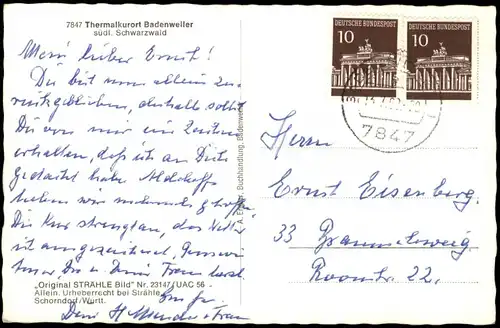 7847 Thermalkurort Badenweiler
südl. Schwarzwald
Mein lieber Ernst!
Du bist nun allein zu-
rückgeblieben, deshalb sollst
Du von mir ein Zeichen
erhalten, daß ich an Dich
gedacht habe.
haben wir mehrmals
Die Kur strengt an, das Wetter
ist ausgezeichnet,
Du u Deine Frau herzl.
"Original STRÄHLE Bild" Nr. 23147/UAC 56 -
Allein. Urheberrecht bei Strähle,
Schorndorf/Württ.
Grüße
Dein H u Frau
Buchhandlung, Badenweiler
10
DEUTSCHE BUNDESPOST
10
DEUTSCHE BUNDESPOST
7847
Herrn
Ernst Eisenberg.
33 Braunschweig
Roonstr. 22.